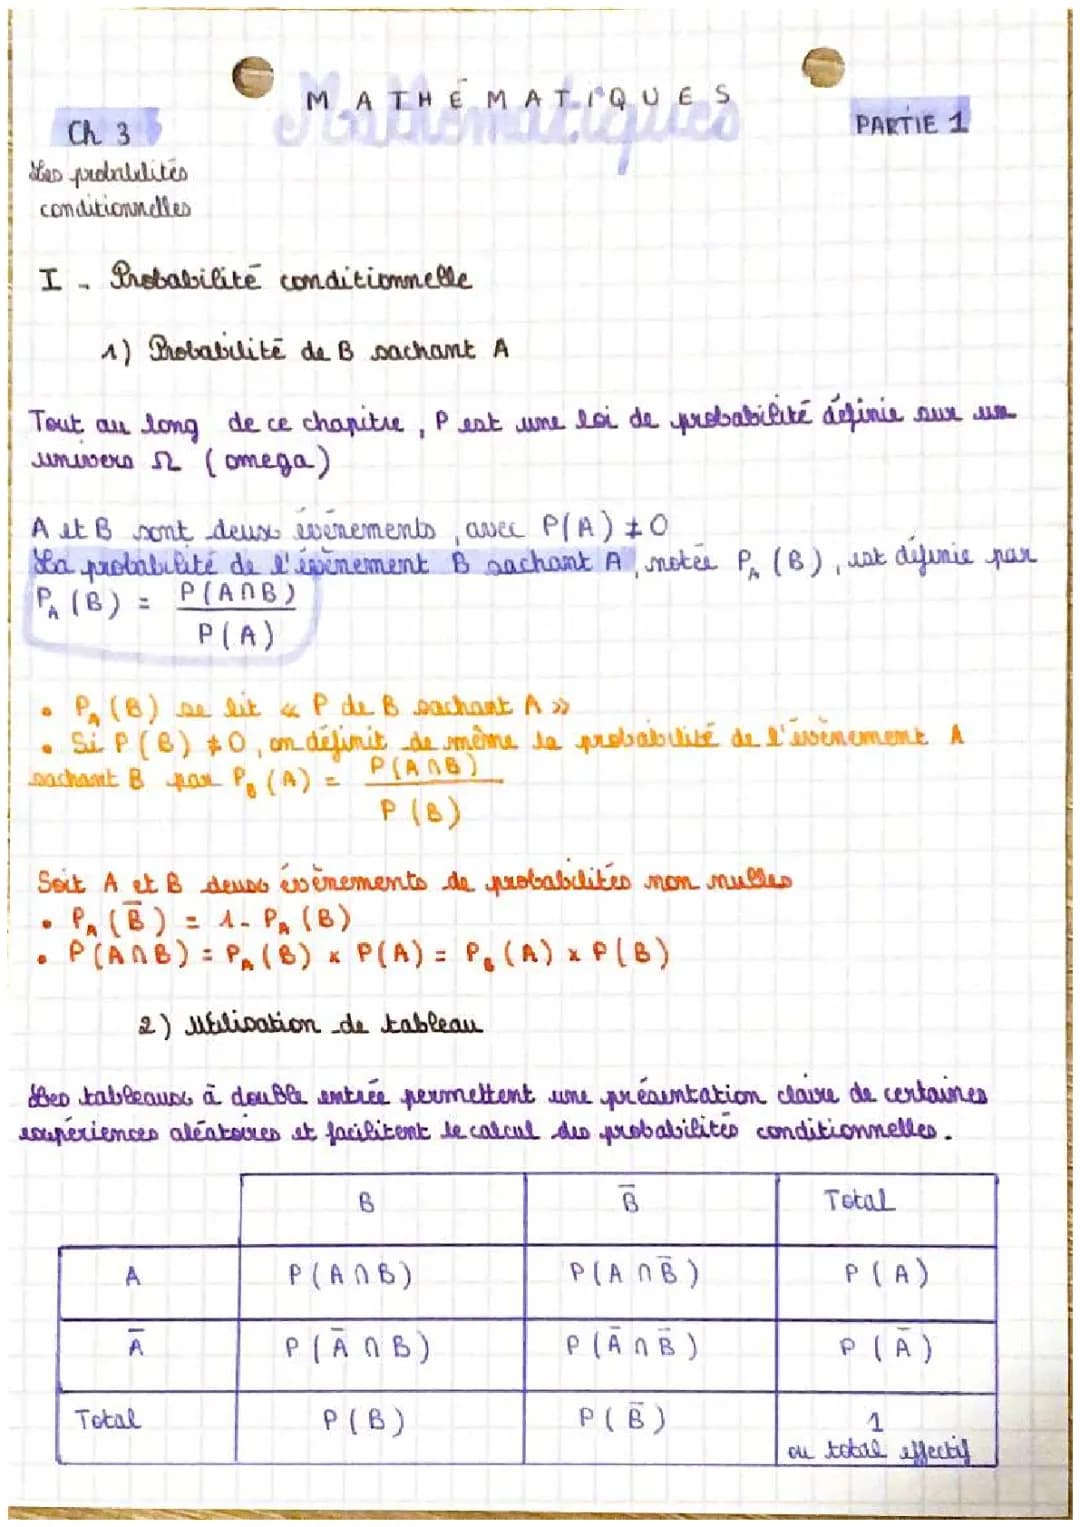 MATHÉMATIQUES
Mathématiques
Ch 3
PARTIE 1
Les probabilités
conditionnelles
I - Probabilité conditionnelle
1) Probabilité de B sachant A
Tout au long de ce chapitre, P est une loi de probabilité définie sur un
univers Ω (omega)
A et B sont deux évènements, avec P(A) ≠ 0
La probabilité de l'évènement B sachant A, notée P_A (B), est définie par
P_A (B) = P(A∩B)
P(A)
• P_A (B) se lit « P de B sachant A »
• Si P(B) ≠ 0, on définit de même la probabilité de l'évènement A
sachant B par P_B (A) = P(A∩B)
P(B)
Soit A et B deux évènements de probabilités non nulles
• P_A (B̅) = 1 - P_A (B)
• P(A∩B) = P_A (B) x P(A) = P_B (A) x P(B)
2) Utilisation de tableau
Les tableaux à double entrée permettent une présentation claire de certaines
expériences aléatoires et facilitent le calcul des probabilités conditionnelles.
B B̅ Total
A P(A∩B) P(A∩B̅) P(A)
A̅ P(A̅∩B) P(A̅∩B̅) P(A̅)
Total P(B) P(B̅) 1
ou total effectif